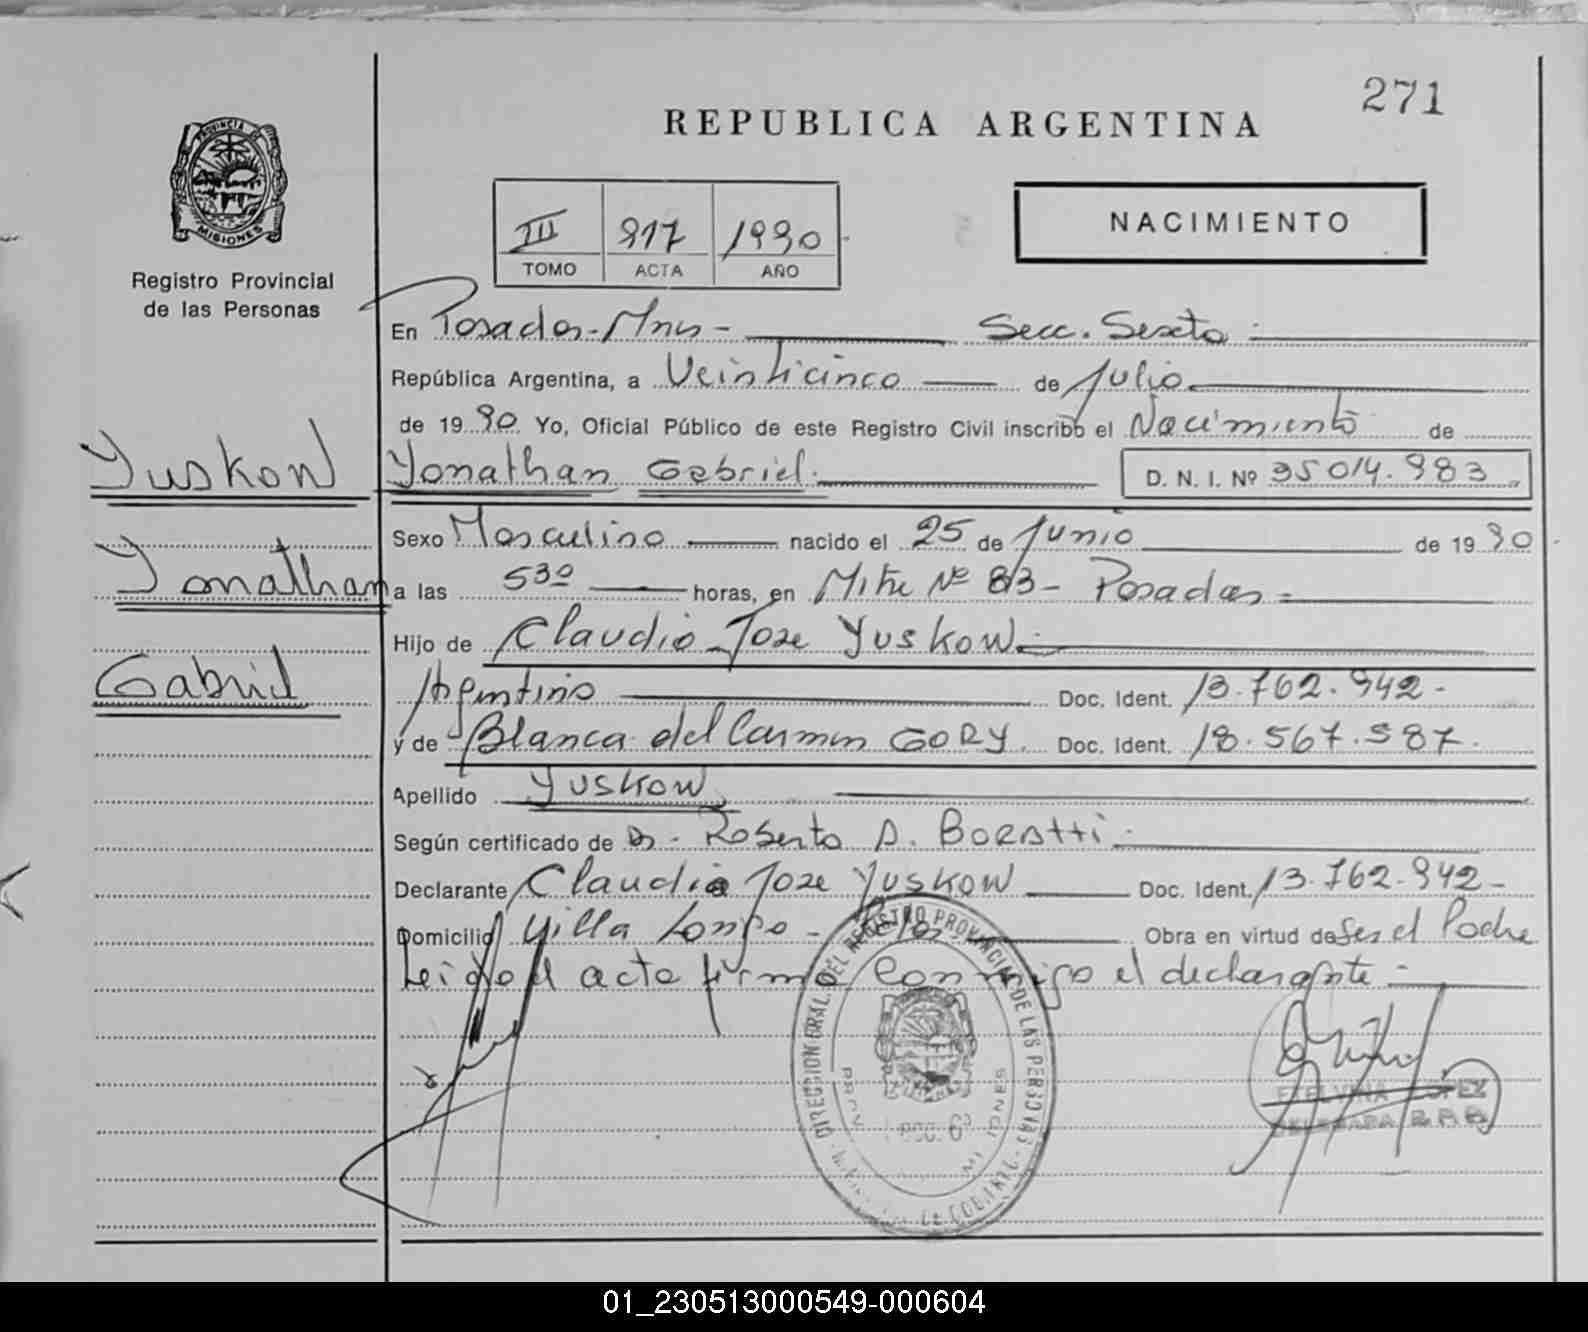 271
REPUBLICA ARGENTINA
PROVINCIA DE
MISIONES
Registro Provincial
de las Personas
III 917 1990
TOMO ACTA AÑO
NACIMIENTO
En Posadas-Mnes- Secc. Sexta
República Argentina, a Veinticinco de Julio
de 1990 Yo, Oficial Público de este Registro Civil inscribo el Nacimiento de
Yuskow
Yonathan Gabriel. D. N. I. Nº 35014.983
Sexo Masculino nacido el 25 de Junio de 1990
Yonathan
a las 530 horas, en Mitre Nº 83- Posadas
Hijo de Claudio Jose Yuskow
Gabriel
Argentino Doc. Ident. 13.762.942-
y de Blanca del Carmen GORY. Doc. Ident. 18.567.587.
Apellido Yuskow
Según certificado de Dr. Roberto A.
Declarante Claudio Jose Yuskow Doc. Ident. 13.762.942-
Domicilio Villa Obra en virtud de Ser el Padre
Leido el acta firma conmigo el declarante
DIRECCION GRAL. DEL REGISTRO PROVINCIAL DE LAS PERSONAS
PROV. MISIONES
ETELVINA LOPEZ
DELEGADA
01_230513000549-000604